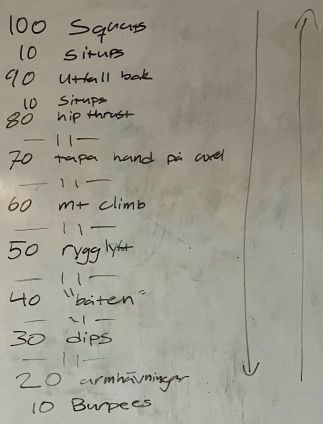 100 Squats
10 situps
90 utfall bak
10 situps
80 hip thrust
— 11 —
70 tapa hand på axel
— 11 —
60 mt climb
— 11 —
50 rygglyft
— 11 —
40 "båten"
— 11 —
30 dips
— 11 —
20 armhävningar
10 Burpees